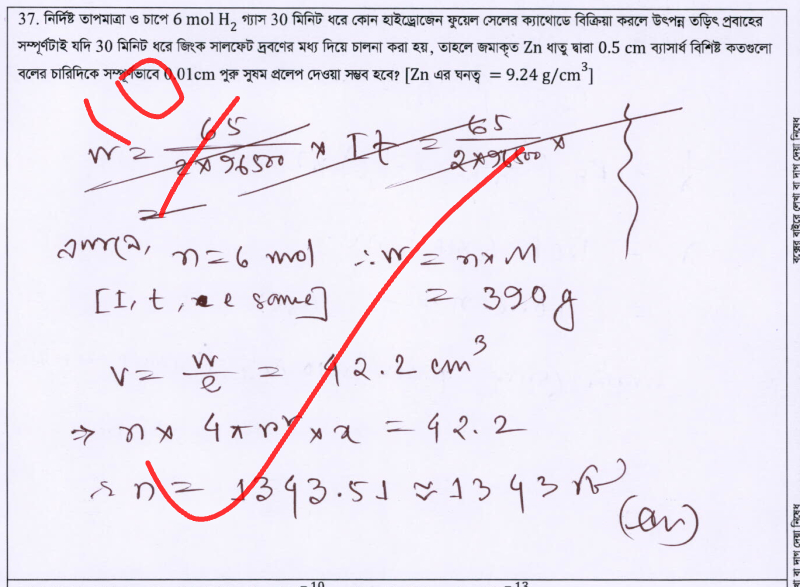 37. নির্দিষ্ট তাপমাত্রা ও চাপে 6 mol H₂ গ্যাস 30 মিনিট ধরে কোন হাইড্রোজেন ফুয়েল সেলের ক্যাথোডে বিক্রিয়া করলে উৎপন্ন তড়িৎ প্রবাহের
সম্পূর্ণটাই যদি 30 মিনিট ধরে জিংক সালফেট দ্রবণের মধ্য দিয়ে চালনা করা হয়, তাহলে জমাকৃত Zn ধাতু দ্বারা 0.5 cm ব্যাসার্ধ বিশিষ্ট কতগুলো
বলের চারিদিকে সম্পূর্ণভাবে 0.01cm পুরু সুষম প্রলেপ দেওয়া সম্ভব হবে? [Zn এর ঘনত্ব = 9.24 g/cm³]
W = 65/(2×96500) × It = 65/(2×96500) ×
=
n = 6 mol ∴ W = n×M
[I, t, e same] = 390g
V = W/ρ = 42.2 cm³
⇒ n × 4πr² × x = 42.2
∴ n = 1343.51 ≈ 1343 টি
(Ans)
বক্সের বাইরে লেখা বা দাগ দেয়া নিষেধ
বা দাগ দেয়া নিষেধ